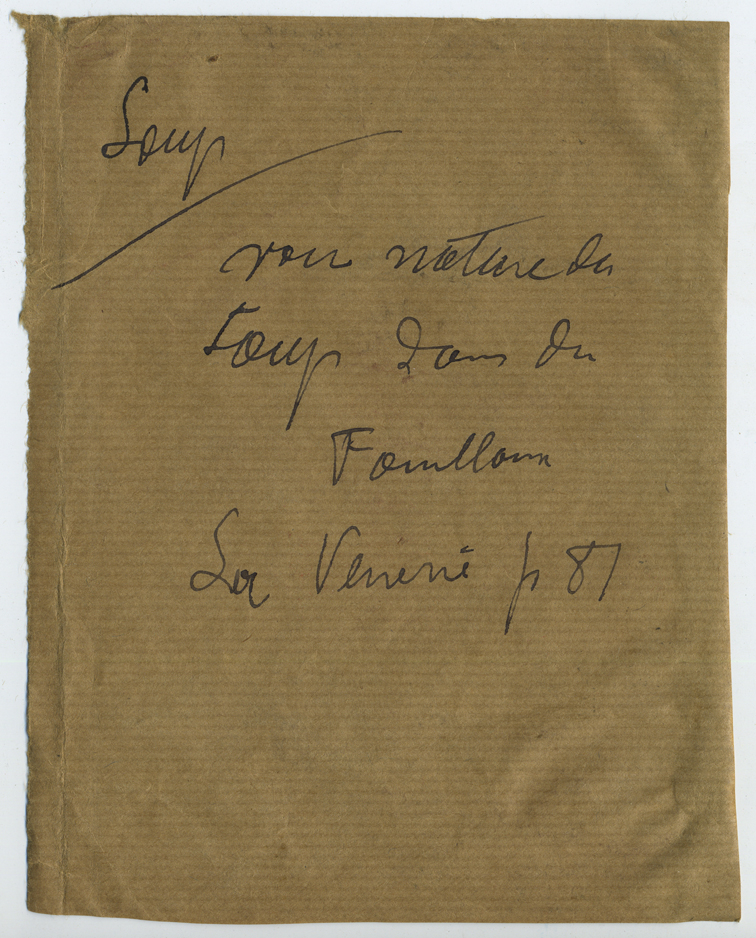 Loup
voir nature du
Loup dans du
Fouilloux
La Vénerie p 87